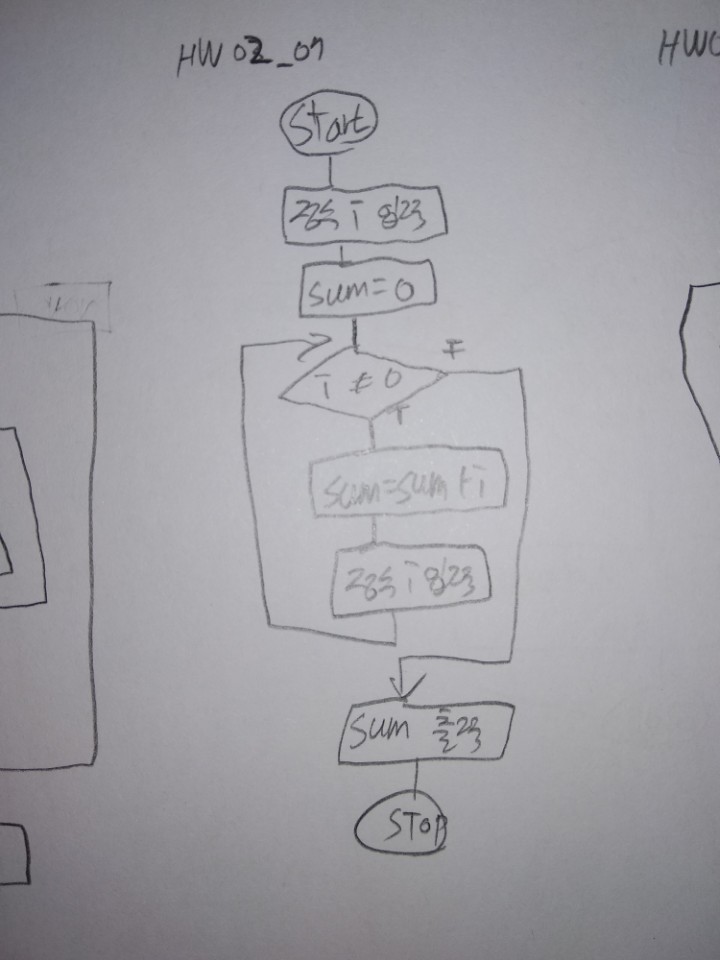 HW 02_07
HW0
Start
정수 i 입력
sum=0
i ≠ 0
F
T
sum=sum+i
정수 i 입력
sum 출력
STOP